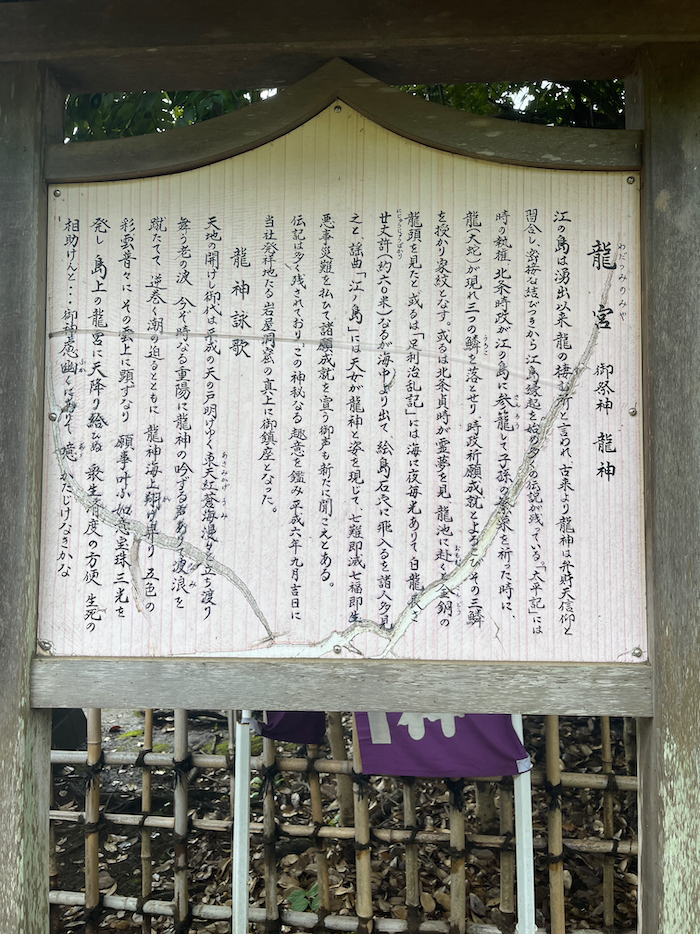 龍宮 御祭神 龍神
わだつみのみや
江の島は湧出以来、龍の棲む所と言われ、古来より龍神は弁財天信仰と
習合し、密接な結びつきから江島縁起を始め多くの伝説が残っている。「太平記」には
時の執権、北条時政が江の島に参籠して子孫の繁栄を祈った時に、
龍(大蛇)が現れ三つの鱗を落とせり、時政祈願成就とよろこびその三鱗
うろこ
を授かり家紋となす。或るは北条貞時が霊夢を見、龍池に赴くと金銅の
おもむ
龍頭を見たと、或るは「足利治乱記」には海に夜毎光ありて、白龍長さ
廿丈許(約六〇米)なるが海中より出て、絵島石屋に飛入るを諸人多見
にじゅうじょうばかり
之と、謡曲「江ノ島」には天女が龍神と姿を現じて、七難即滅七福即生
悪事災難を払ひて諸願成就を宣う御声も新たに聞こえとある。
伝記は多く残されており、この神秘なる趣意を鑑み平成六年九月吉日に
当社発祥地たる岩屋洞窟の真上に御鎮座となった。
龍神詠歌
天地の開けし御代は平成の、天の戸明けゆく東天紅、蒼海漫々と立ち渡り
舞う老の波、今ぞ時なる重陽に龍神の吟ずる声ありて、波浪を
なみ
蹴たてて、逆巻く潮の迫るとともに、龍神海上翔け昇り、五色の
彩雲普々に、その雲上に顕ずなり、願事叶ふ如意宝珠、三光を
発し、島上の龍宮に天降り給ひぬ、衆生済度の方便、生死の
相助けんと・・御神慮幽くにありて、忝かたじけなきかな